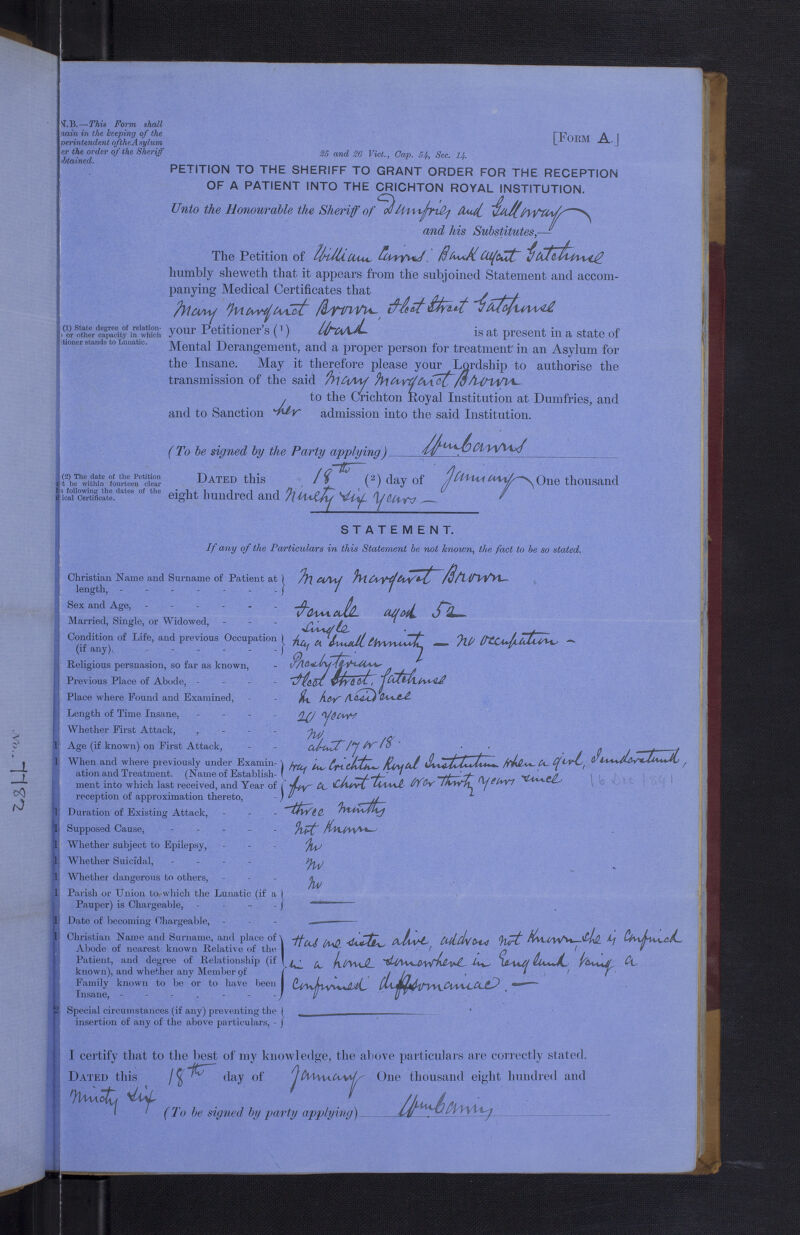 N.B.—This Form shall
main in the keeping of the
perintendent of the Asylum
er the order of the Sheriff
btained.
[FORM A.]
25 and 26 Vict., Cap. 54, Sec. 14.
PETITION TO THE SHERIFF TO GRANT ORDER FOR THE RECEPTION
OF A PATIENT INTO THE CRICHTON ROYAL INSTITUTION.
Unto the Honourable the Sheriff of Dumfries and Galloway
and his Substitutes,—
The Petition of William Cairns. Bank agent Gatehouse
humbly sheweth that it appears from the subjoined Statement and accom-
panying Medical Certificates that
Mary Margaret Brown Fleet Street Gatehouse
(1) State degree of relation-
or other capacity in which
itioner stands to Lunatic.
your Petitioner's (1) Ward is at present in a state of
Mental Derangement, and a proper person for treatment in an Asylum for
the Insane. May it therefore please your Lordship to authorise the
transmission of the said Mary Margaret Brown
to the Crichton Royal Institution at Dumfries, and
and to Sanction her admission into the said Institution.
(To be signed by the Party applying) Wm Cairns
(2) The date of the Petition
t be within fourteen clear
following the dates of the
ical Certificate.
DATED this 18th (2) day of January One thousand
eight hundred and Ninety six years —
STATEMENT.
If any of the Particulars in this Statement be not known, the fact to be so stated.
Christian Name and Surname of Patient at length, - Mary Margaret Brown
Sex and Age, - Female aged 52
Married, Single, or Widowed, - Single
Condition of Life, and previous Occupation (if any). - has a small annuity — no occupation —
Religious persuasion, so far as known, - Presbyterian
Previous Place of Abode, - Fleet Street, Gatehouse
Place where Found and Examined, - In her residence
Length of Time Insane, - 20 years
Whether First Attack, - no
1 Age (if known) on First Attack, - about 17 or 18.
1 When and where previously under Examin-
ation and Treatment. (Name of Establish-
ment into which last received, and Year of
reception of approximation thereto,
was in Crichton Royal Institution when a girl, I understand,
for a short time over thirty years since 16 Dec 1841
1 Duration of Existing Attack, - three months
1 Supposed Cause, - not known
1 Whether subject to Epilepsy, - no
1 Whether Suicidal, - no
1 Whether dangerous to others, - no
1 Parish or Union to which the Lunatic (if a
Pauper) is Chargeable, - ——
1 Date of becoming Chargeable, - ——
1 Christian Name and Surname, and place of
Abode of nearest known Relative of the
Patient, and degree of Relationship (if
known), and whether any Member of
Family known to be or to have been
Insane, -
Has one sister alive, address not known, she is confined
in a home somewhere in England, being a
confirmed dipsomaniac. —
2 Special circumstances (if any) preventing the
insertion of any of the above particulars, - ——
I certify that to the best of my knowledge, the above particulars are correctly stated.
DATED this 18th day of January One thousand eight hundred and
Ninety six
(To be signed by party applying) Wm Cairns
No. 7182